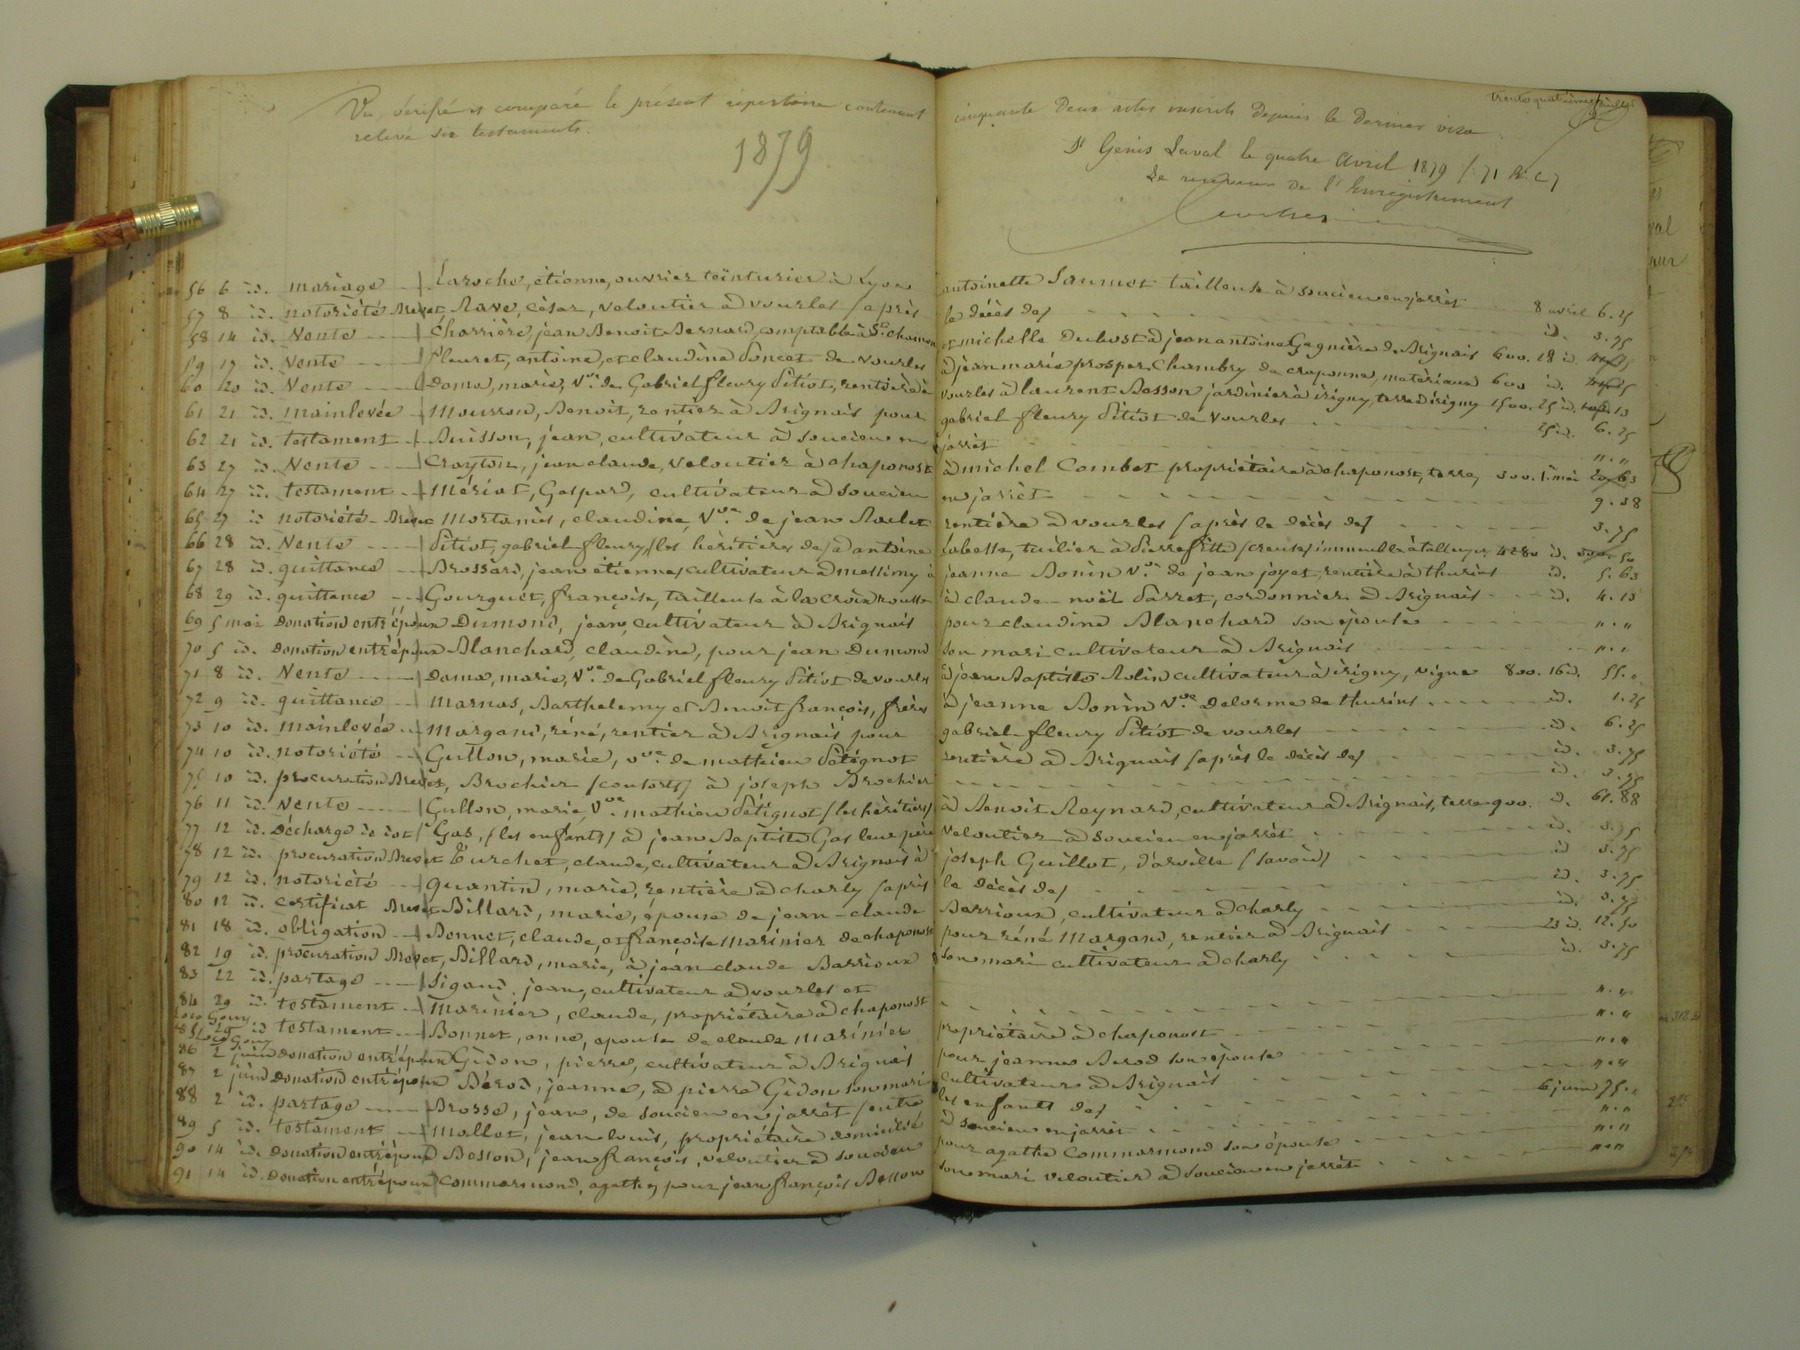 trente quatrième feuillet
Vu, vérifié et comparé le présent répertoire contenant cinquante Deux actes inscrits Depuis le Dernier visa
relevé six testaments.
1879
St Genis Laval le quatre Avril 1879
Le receveur de l'Enregistrement
56 6 id. mariage Laroche, étienne, ouvrier teinturier à Lyon antoinette Jaumet tailleuse à soucieu en jarrêt 8 avril 6.25
57 8 id. notoriété Brevet, Rave, césar, veloutier à vourles /après le décès de/ id. 3.75
58 14 id. Vente Charrière, jean Benoit Bernard, comptable à St. chamond et michelle Dubost à jean antoine Gagnière de Brignais 600. 18 id.
59 17 id. Vente fleuret, antoine, et claudine Poncet de vourles à jean marie prosper Chambry de craponne, matériaux 600 id.
60 20 id. Vente Dama, marie, Vve. de Gabriel fleury Pitiot, rentière à vourles à laurent Besson jardinier à irigny, terre à irigny 1500. 25 id. 13
61 21 id. mainlevée Mourron, Benoit, rentier à Brignais pour gabriel fleury Pitiot de vourles 25 id. 6.25
62 21 id. testament Buisson, jean, cultivateur à soucieu en jarrêt "."
63 27 id. Vente Crayton, jean claude, veloutier à chaponost à michel Combet propriétaire à chaponost, terre, 300. 1. mai 63
64 27 id. testament Mériat, Gaspard, cultivateur à soucieu en jarrêt 9.38
65 27 id notoriété Brevet Mortamès, claudine, Vve. de jean rentière à vourles /après le décès de/ 3.75
66 28 id. Vente Pitiot, gabriel fleury /les héritiers de/ à antoine Labesse, tuilier à Pierrefitte /creuse/ immeuble à talluyer, 4280 id. 50
67 28 id. quittance Brossard, jean étienne, cultivateur à messimy à jeanne Bonin Vve. de jean joyet, rentière à thurins id. 5.63
68 29 id. quittance Gourguet, françoise, tailleuse à la croix rousse à claude-noël Parret, cordonnier à Brignais id. 4.13
69 5 mai Donation entr'époux Dumond, jean, cultivateur à Brignais pour claudine Blanchard son épouse "."
70 5 id. Donation entr'époux Blanchard, claudine, pour jean Dumond son mari cultivateur à Brignais "."
71 8 id. Vente Dama, marie, Vve. de Gabriel fleury Pitiot de vourles à jean Baptiste Rolin cultivateur à irigny, vigne 800. 16 id. 55."
72 9 id. quittance Marnas, Barthelemy et Benoit françois, frères à jeanne Bonin Vve Delorme de thurins id. 1.25
73 10 id. mainlevée Margand, réné, rentier à Brignais pour gabriel-fleury Pitiot de vourles id. 6.25
74 10 id. notoriété Gullon, marie, vve. de mathieu Pétignot rentière à Brignais /après le décès de/ id. 3.75
75 10 id. procuration Brevet, Brochier /consorts/ à joseph Brochier id. 3.75
76 11 id. Vente Gullon, marie, Vve. mathieu Pétignot /les héritiers/ à Benoit Reynard, cultivateur à Brignais, terre 900. id. 61.88
77 12 id. Décharge de dot Gas, /les enfants/ à jean Baptiste Gas leur père veloutier à soucieu en jarrêt id. 3.75
78 12 id. procuration Brevet Turchet, claude, cultivateur à Brignais à joseph Guillot, d'arville /savoie/ id 3.75
79 12 id. notoriété Quantin, marie, rentière à charly /après le décès de/ id. 3.75
80 12 id. certificat Brevet Billard, marie, épouse de jean-claude Barrioux, cultivateur à charly id. 3.75
81 18 id. obligation Bonnet, claude, et françoise Marinier de chaponost pour réné Margand, rentier à Brignais 23 id. 12.50
82 19 id. procuration Brevet, Billard, marie, à jean claude Barrioux son mari cultivateur à charly id. 3.75
83 22 id. partage Sigaud, jean, cultivateur à vourles et
84 29 id. testament Marinier, claude, propriétaire à chaponost "."
85 29 id testament Bonnet, anne, épouse de claude Marinier propriétaire à chaponost "."
86 2 juin donation entr'époux Gédon, pierre, cultivateur à Brignais pour jeanne Berod son épouse "."
87 2 juin Donation entr'époux Bérod, jeanne, à pierre Gédon son mari cultivateur à Brignais "."
88 2 id. partage Brosse, jean, de soucieu en jarrêt /entre les enfants de/ 6 juin 75."
89 5 id. testament Mallet, jean louis, propriétaire domicilié à soucieu en jarrêt "."
90 14 id. Donation entr'époux Besson, jean françois, veloutier à soucieu pour agathe Commarmond son épouse "."
91 14 id. Donation entr'époux Commarmond, agathe, pour jean françois Besson son mari veloutier à soucieu en jarrêt "."